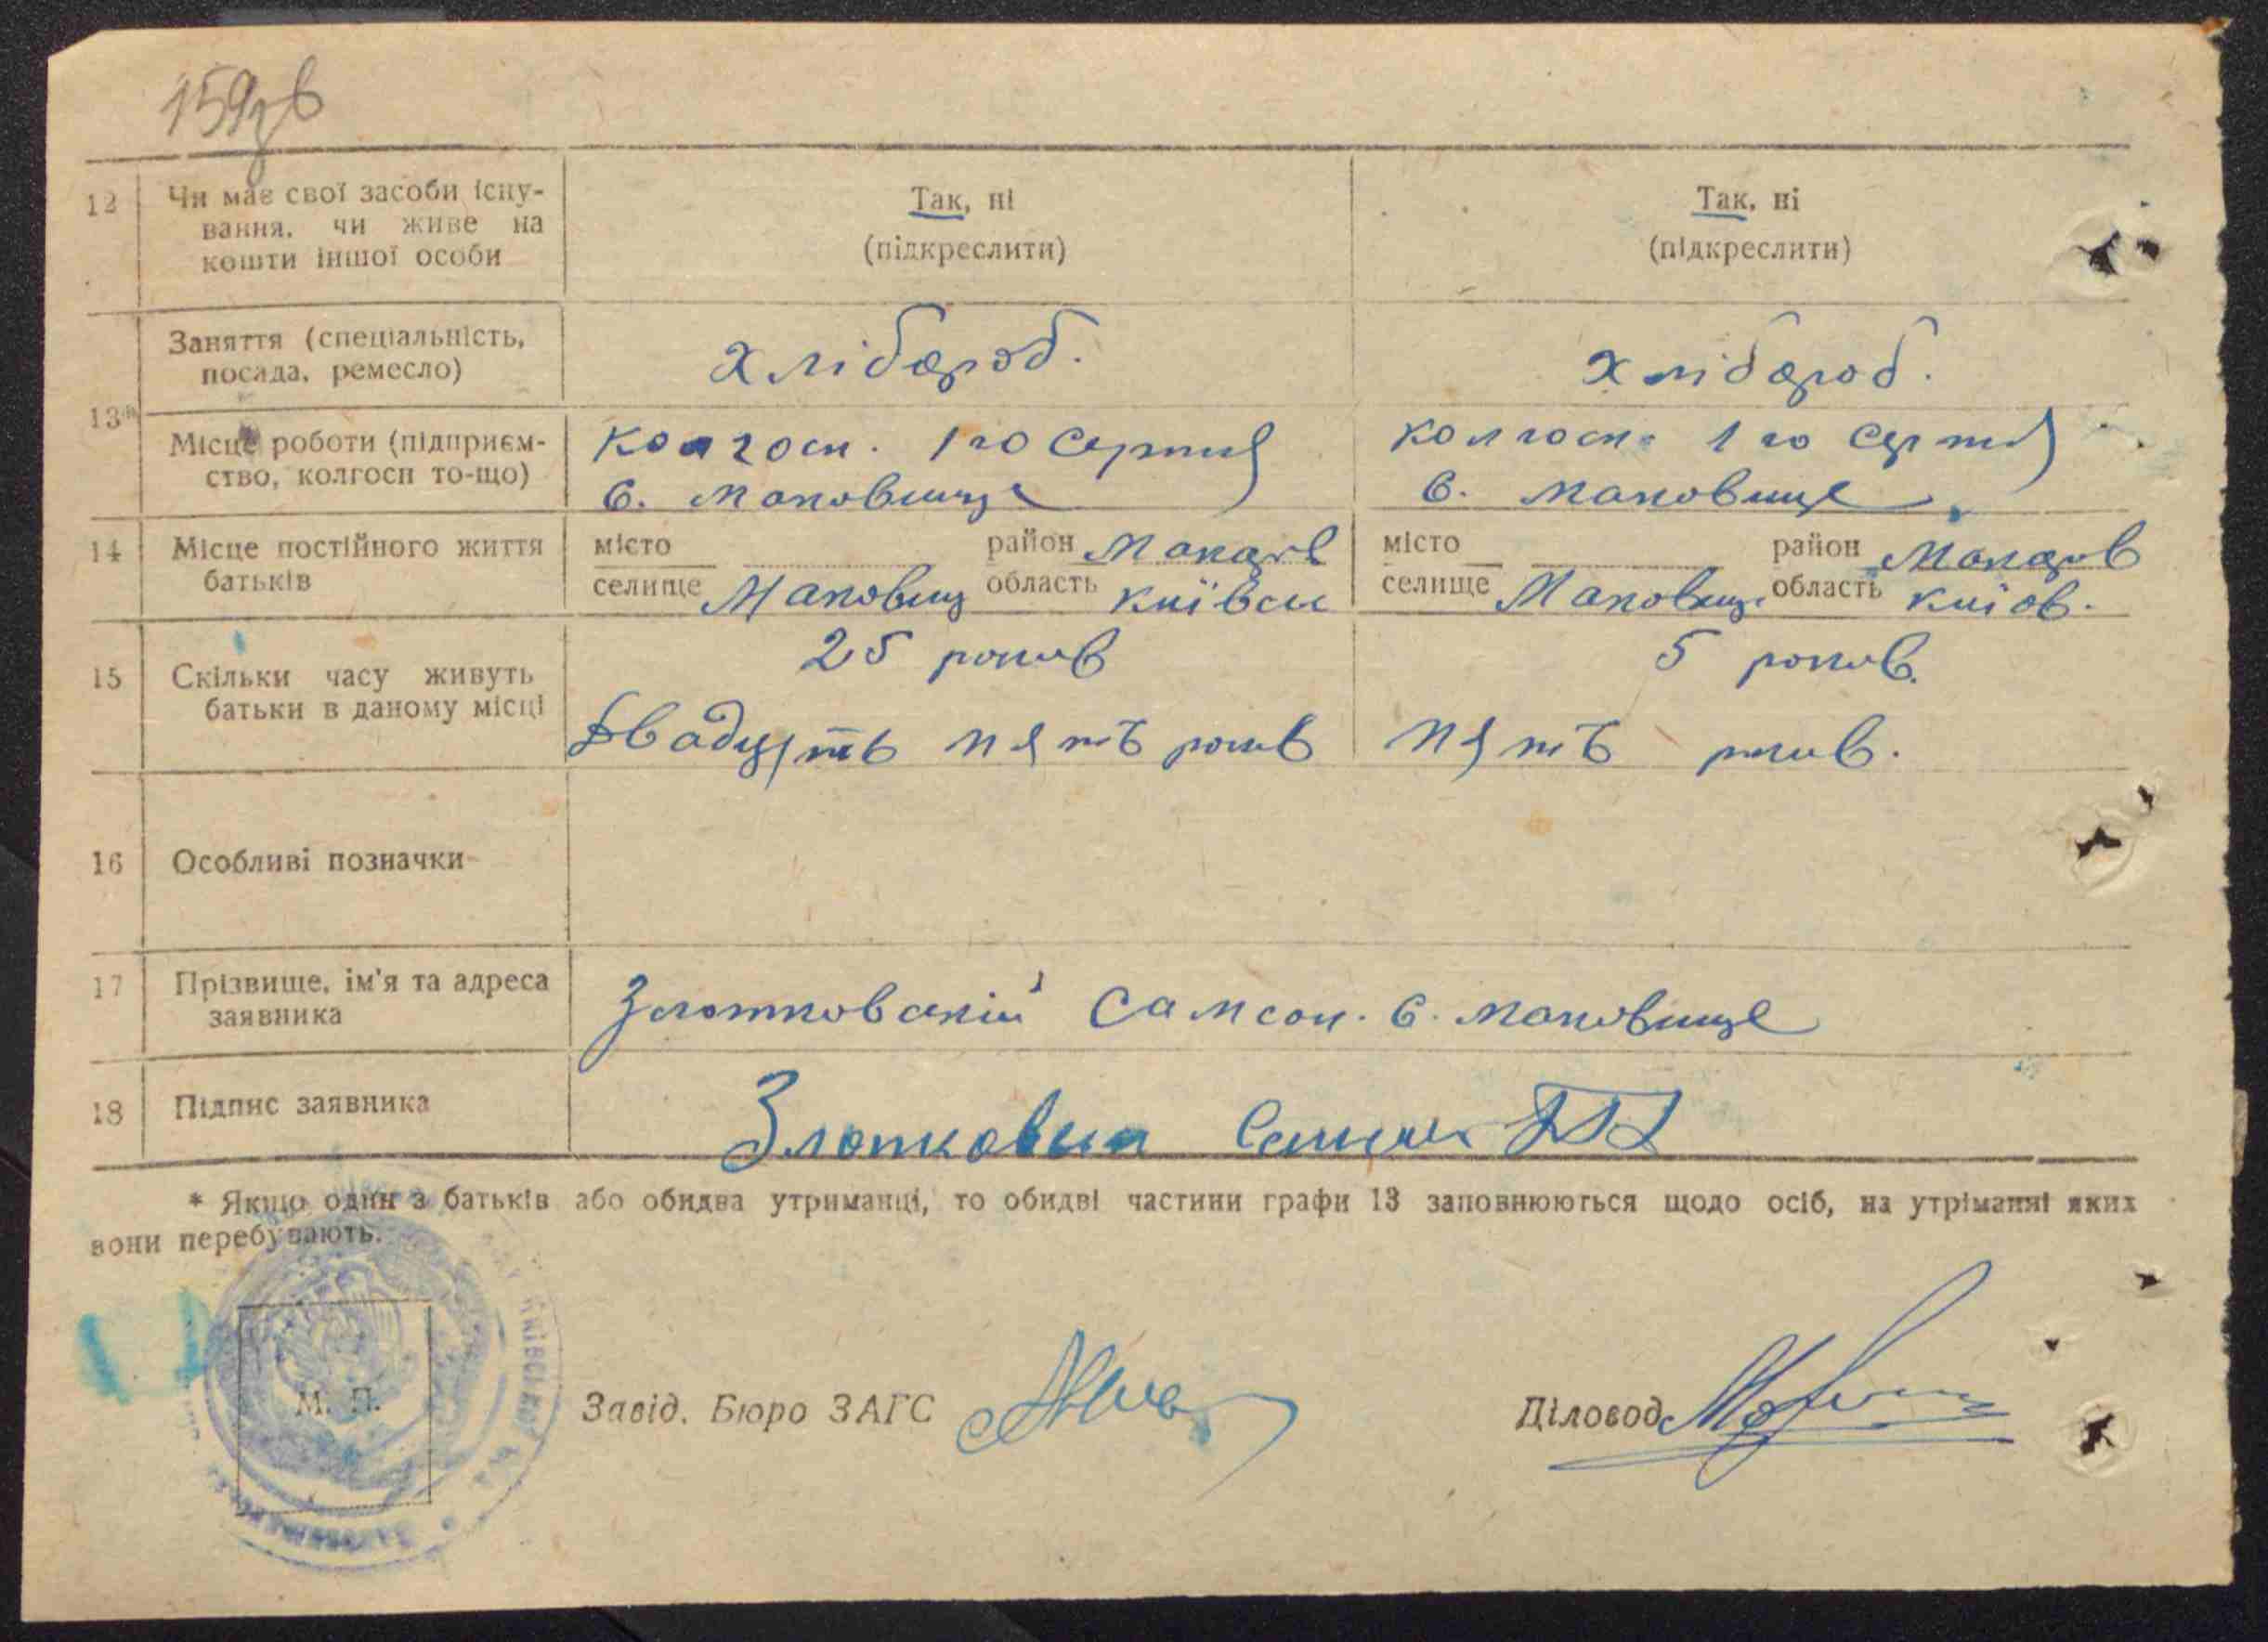 159зв
12 Чи має свої засоби існу-
вання, чи живе на
кошти іншої особи
Так, ні
(підкреслити)
Так, ні
(підкреслити)
13*
Заняття (спеціальність,
посада, ремесло)
хлібороб.
хлібороб.
Місце роботи (підприєм-
ство, колгосп то-що)
Колгосп. 1го Серпня
с. Маковище
Колгосп. 1го Серпня
с. Маковище
14 Місце постійного життя
батьків
місто район Макарів
селище Маковищ область київськ
місто район Макарів
селище Маковище область київ.
15 Скільки часу живуть
батьки в даному місці
25 років
Двадцять пять років
5 років.
пять років.
16 Особливі позначки
17 Прізвище, ім'я та адреса
заявника
Златковский Самсон. с. Маковище
18 Підпис заявника
* Якщо один з батьків або обидва утриманці, то обидві частини графи 13 заповнюються щодо осіб, на утріманні яких
вони перебувають.
М. П.
Завід. Бюро ЗАГС
Діловод